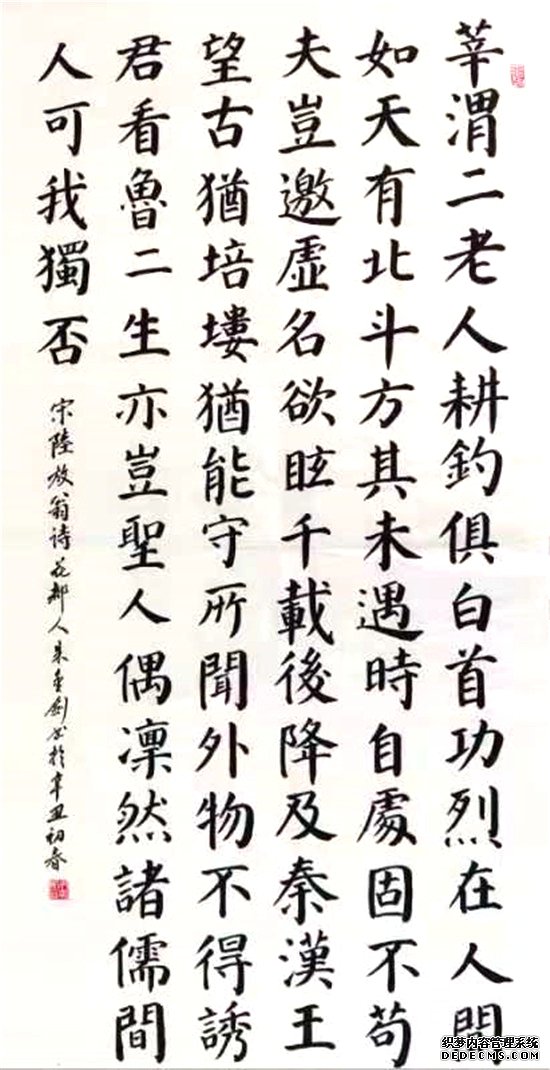 莘渭二老人耕釣俱白首功烈在人間
如天有北斗方其未遇時自處固不苟
夫豈邀虛名欲眩千載後降及秦漢王
望古猶培塿猶能守所聞外物不得誘
君看魯二生亦豈聖人偶凜然諸儒間
人可我獨否
宋陸放翁诗花都人朱剑书於辛丑初春
织梦内容管理系统
DEDECMS.COM